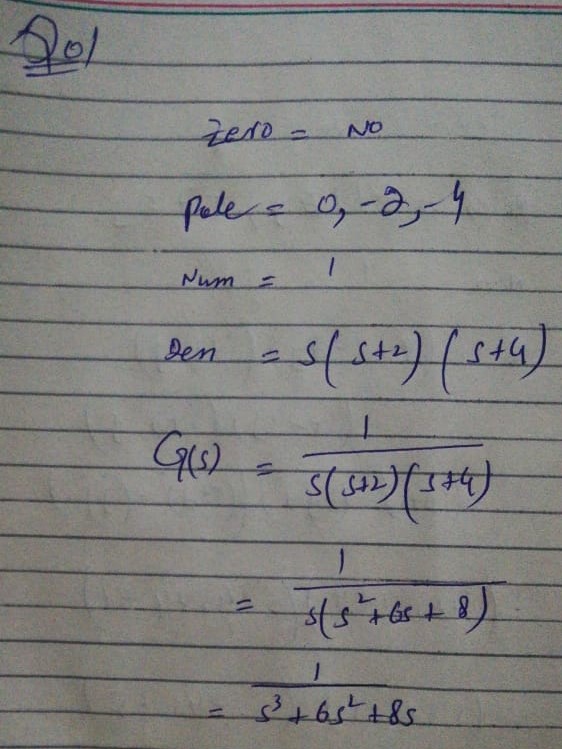 Q01
Zero = NO
Pole = 0, -2, -4
Num = 1
Den = s(s+2)(s+4)
G(s) = 1/s(s+2)(s+4)
= 1/s(s²+6s+8)
= 1/s³+6s²+8s